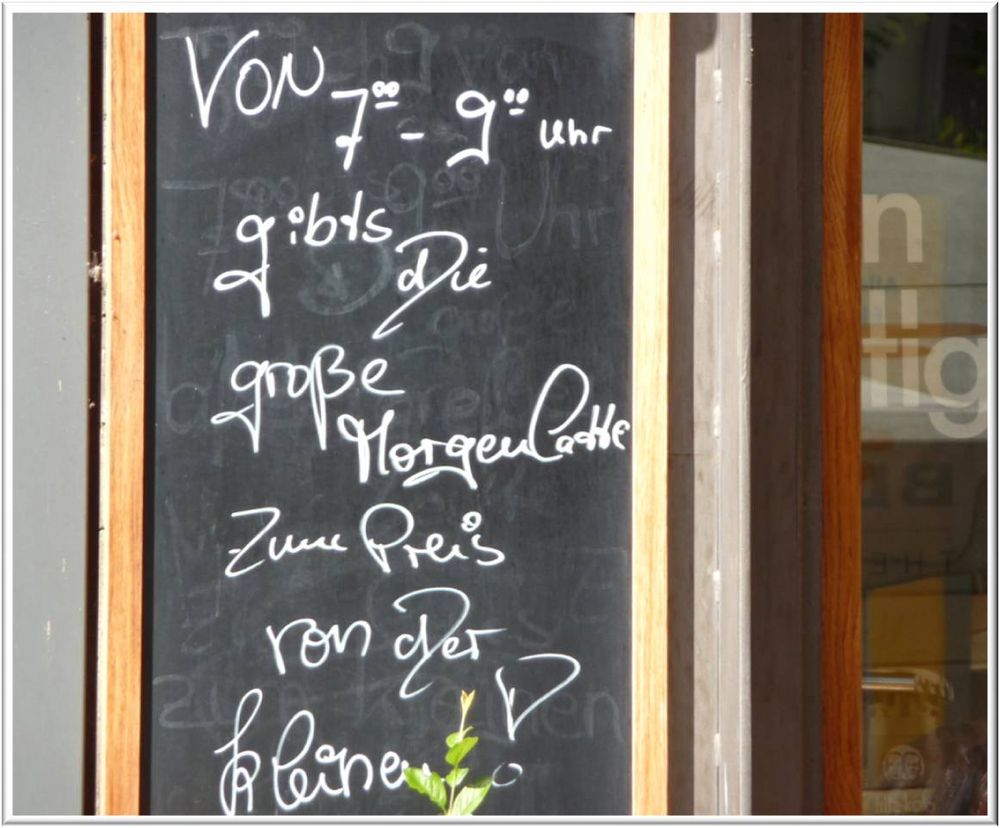 Von 7⁰⁰ - 9⁰⁰ Uhr
gibts Die
große
MorgenLatte
zum Preis
von Der
kleinen!
n
fig